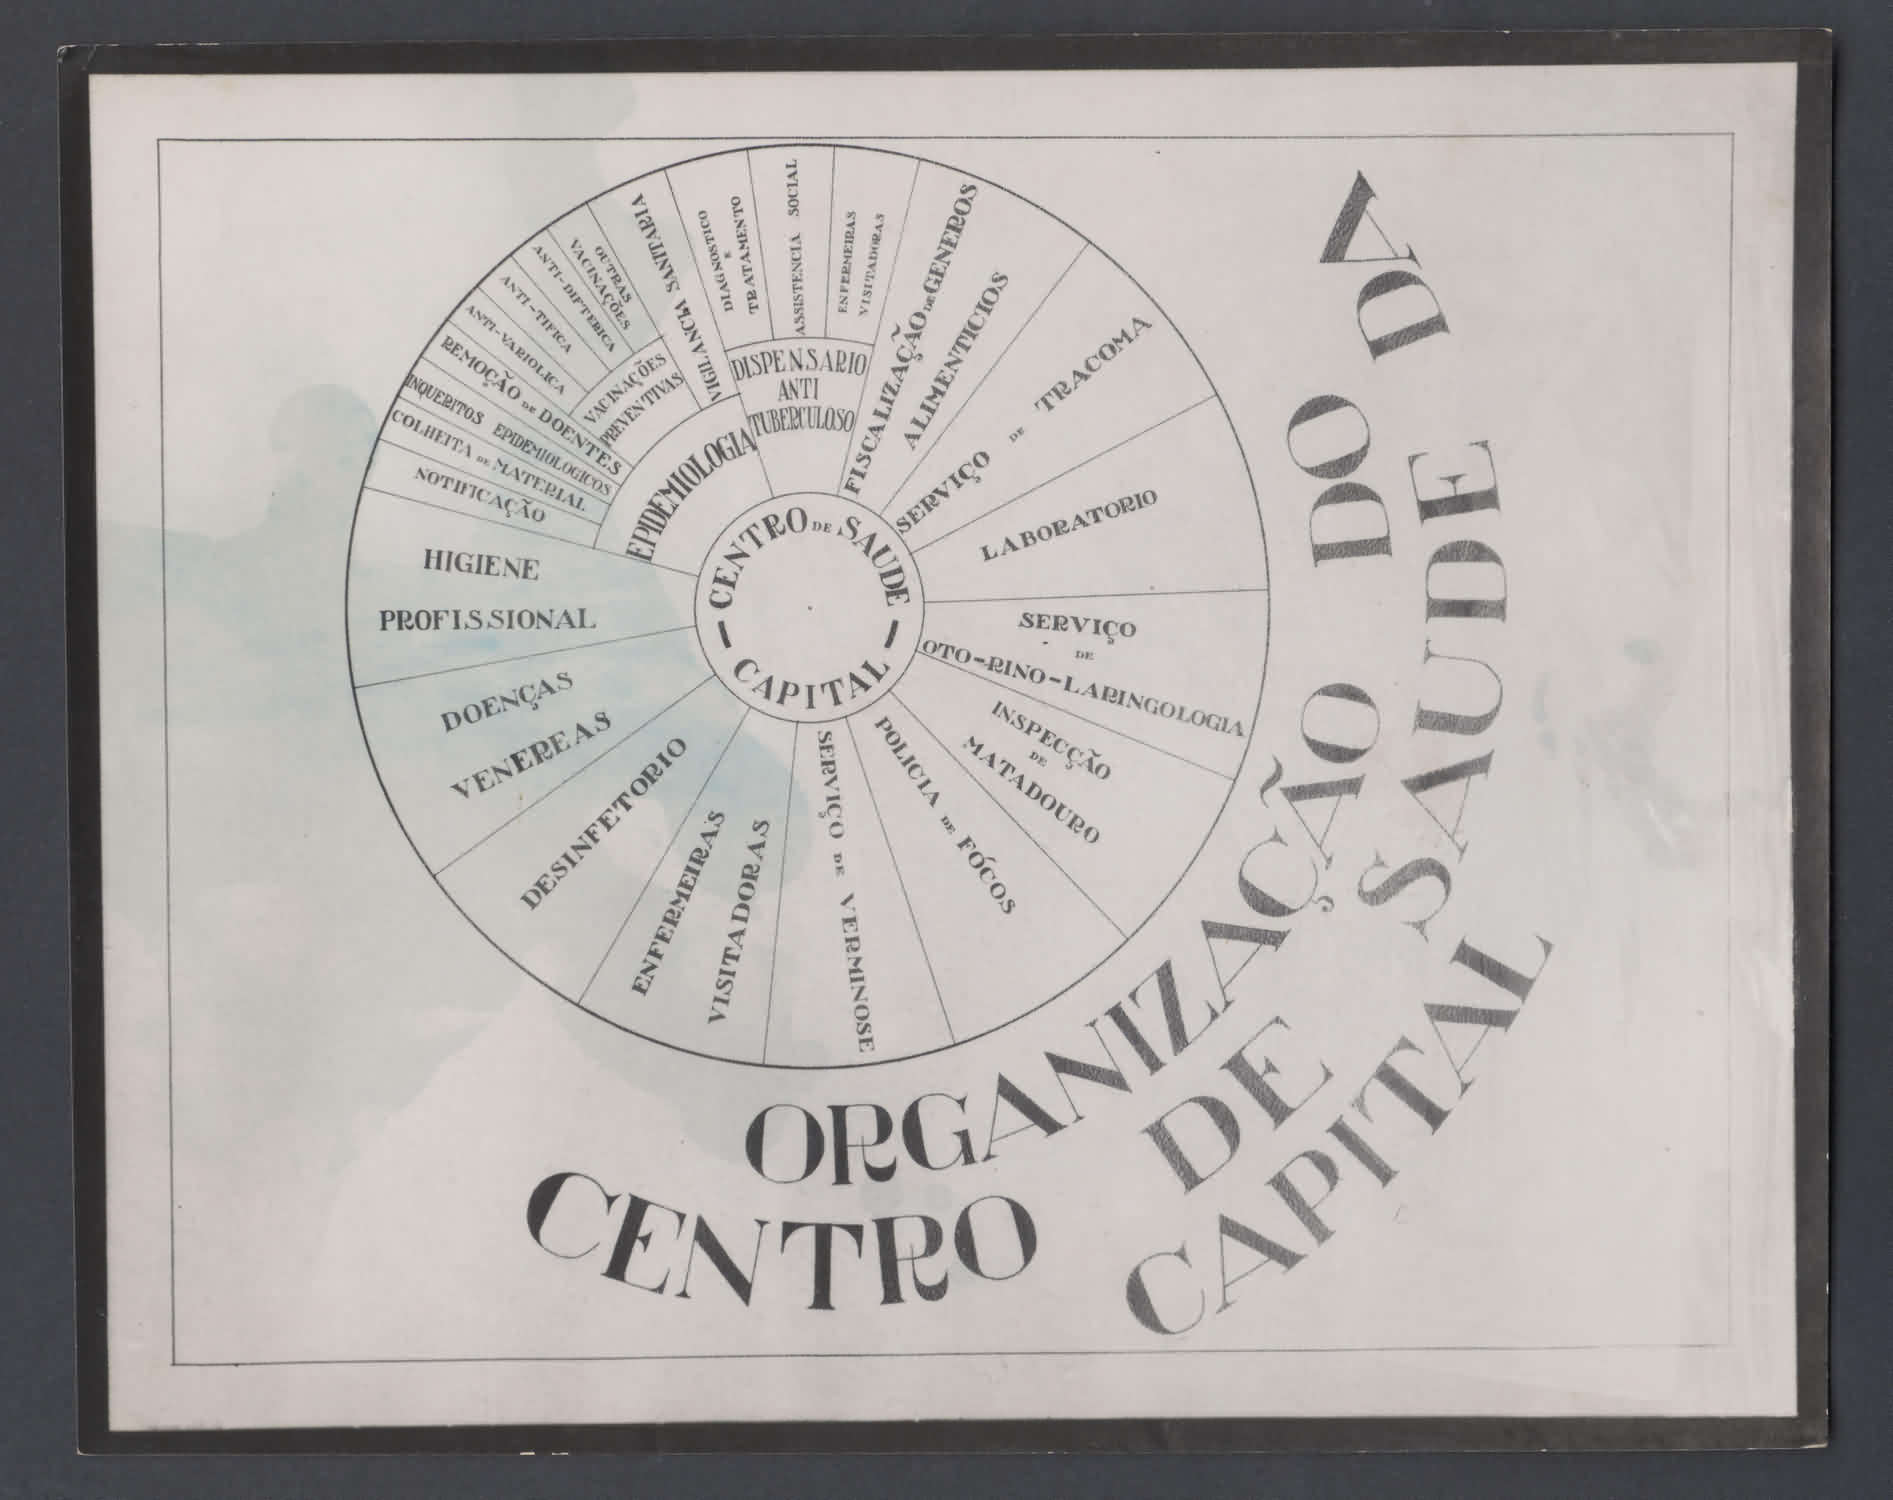 ORGANIZAÇÃO DO DA
CENTRO DE SAUDE
CAPITAL
CENTRO DE SAUDE
- CAPITAL -
EPIDEMIOLOGIA
NOTIFICAÇÃO
COLHEITA DE MATERIAL
INQUERITOS EPIDEMIOLOGICOS
REMOÇÃO DE DOENTES
VACINAÇÕES
PREVENTIVAS
ANTI-VARIOLICA
ANTI-TIFICA
ANTI-DIFTERICA
OUTRAS
VACINAÇÕES
VIGILANCIA SANITARIA
DISPENSARIO
ANTI
TUBERCULOSO
DIAGNOSTICO
E
TRATAMENTO
ASSISTENCIA SOCIAL
ENFERMEIRAS
VISITADORAS
FISCALIZAÇÃO DE GENEROS
ALIMENTICIOS
SERVIÇO DE TRACOMA
LABORATORIO
SERVIÇO
DE
OTO-RINO-LARINGOLOGIA
INSPECÇÃO
DE
MATADOURO
POLICIA DE FÓCOS
SERVIÇO DE VERMINOSE
ENFERMEIRAS
VISITADORAS
DESINFETORIO
DOENÇAS
VENEREAS
HIGIENE
PROFISSIONAL